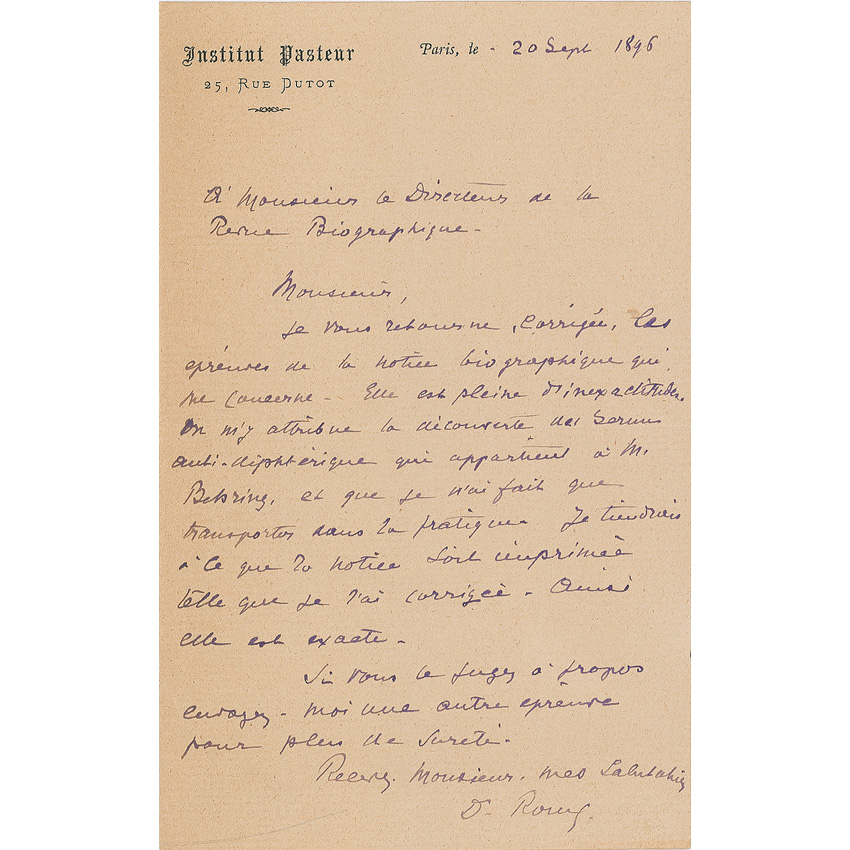 Institut Pasteur
25, RUE DUTOT
Paris, le - 20 Sept 1896
A Monsieur le Directeur de la
Revue Biographique -
Monsieur,
Je vous retourne, corrigée, les
épreuves de la notice biographique qui
me concerne - Elle est pleine d'inexactitudes.
On m'y attribue la découverte du Serum
anti-diphtérique qui appartient à M.
Behring, et que je n'ai fait que
transporter dans la pratique. Je tiendrais
à ce que la notice soit imprimée
telle que je l'ai corrigée - Ainsi
elle est exacte -
Si vous le jugez à propos
envoyez-moi une autre épreuve
pour plus de sureté.
Recevez, Monsieur, mes Salutations
Dr Roux.